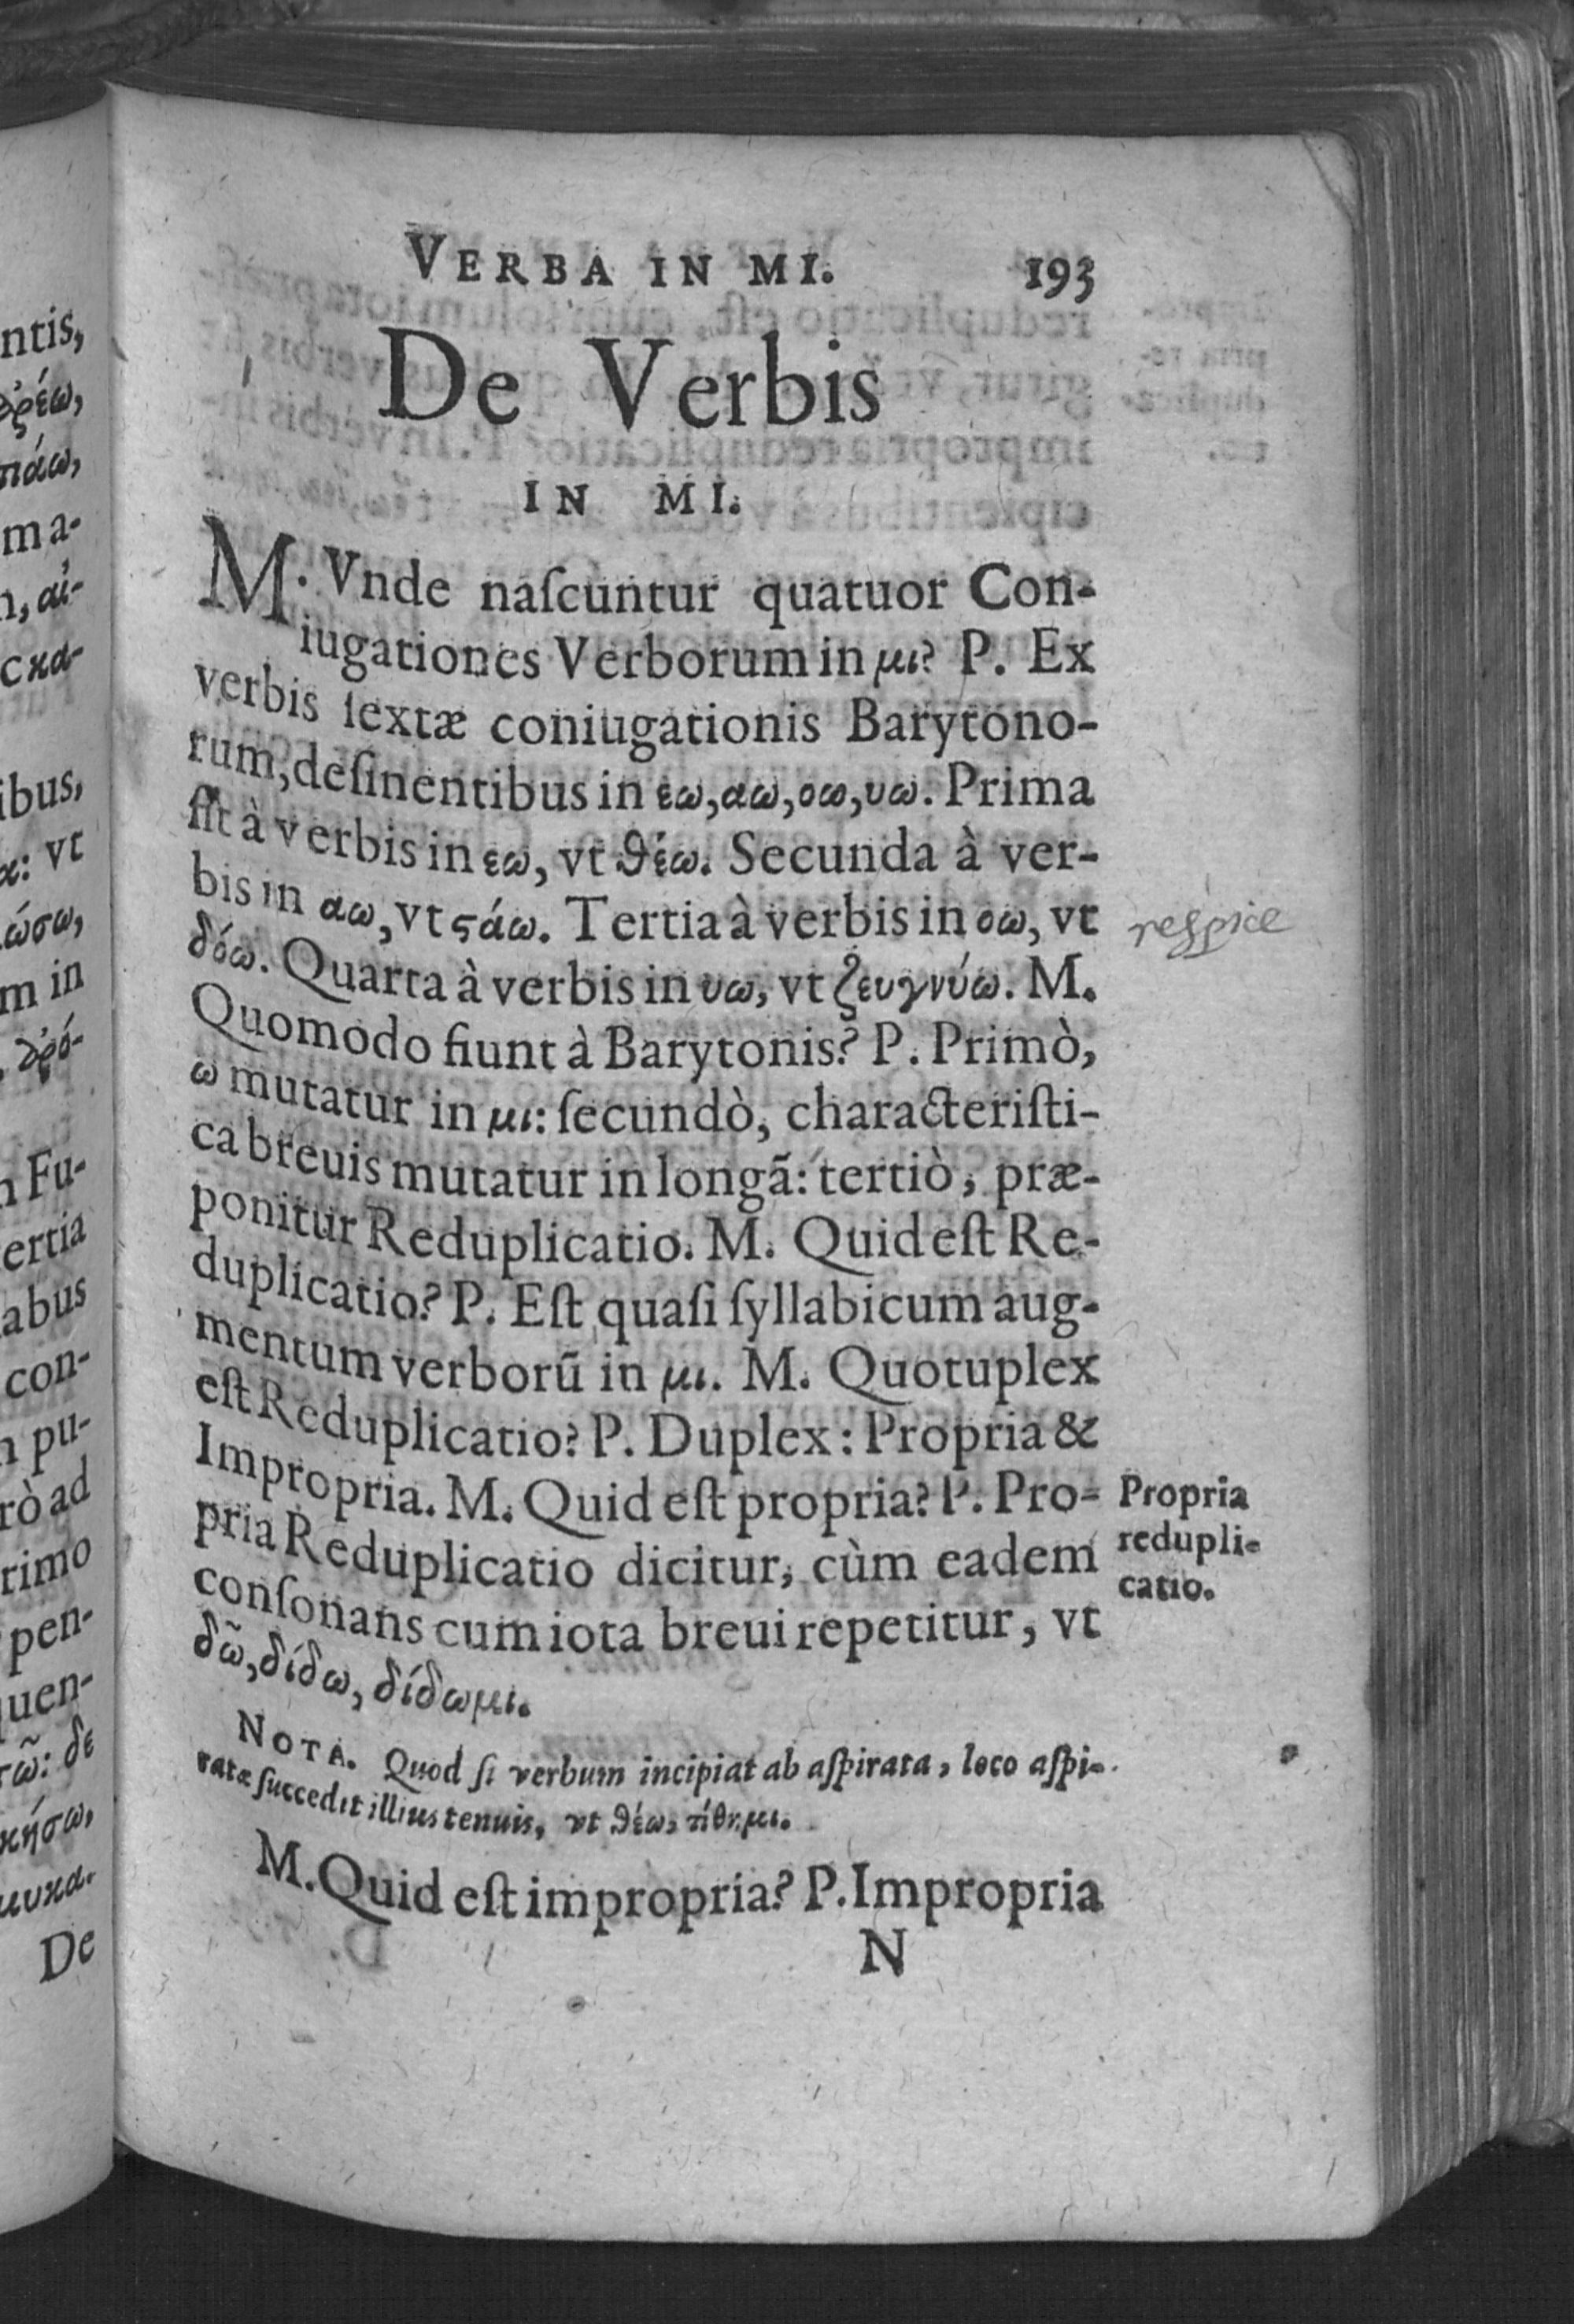 VERBA IN MI. 193
De Verbis
IN MI.
M. Vnde naſcuntur quatuor Con-
iugationes Verborum in μι? P. Ex
verbis ſextæ coniugationis Barytono-
rum, deſinentibus in εω, αω, οω, υω. Prima
fit à verbis in εω, vt θέω. Secunda à ver-
bis in αω, vt ϛάω. Tertia à verbis in οω, vt
respice
δόω. Quarta à verbis in υω, vt ζευγνύω. M.
Quomodo fiunt à Barytonis? P. Primò,
ω mutatur in μι: ſecundò, characteriſti-
ca breuis mutatur in longã: tertiò, præ-
ponitur Reduplicatio. M. Quid eſt Re-
duplicatio? P. Eſt quaſi ſyllabicum aug-
mentum verborũ in μι. M. Quotuplex
eſt Reduplicatio? P. Duplex: Propria &
Impropria. M. Quid eſt propria? P. Pro-
pria Reduplicatio dicitur, cùm eadem
conſonans cum iota breui repetitur, vt
δῶ, δίδω, δίδωμι.
Propria
redupli-
catio.
NOTA. Quod ſi verbum incipiat ab aſpirata, loco aſpi-
ratæ ſuccedit illius tenuis, vt θέω, τίθημι.
M. Quid eſt impropria? P. Impropria
N
ntis,
ma-
ibus,
: vt
ώσω,
m in
Fu-
ertia
abus
con-
pu-
rò ad
rimo
pen-
quen-
τῶ: δε
κήσω,
De